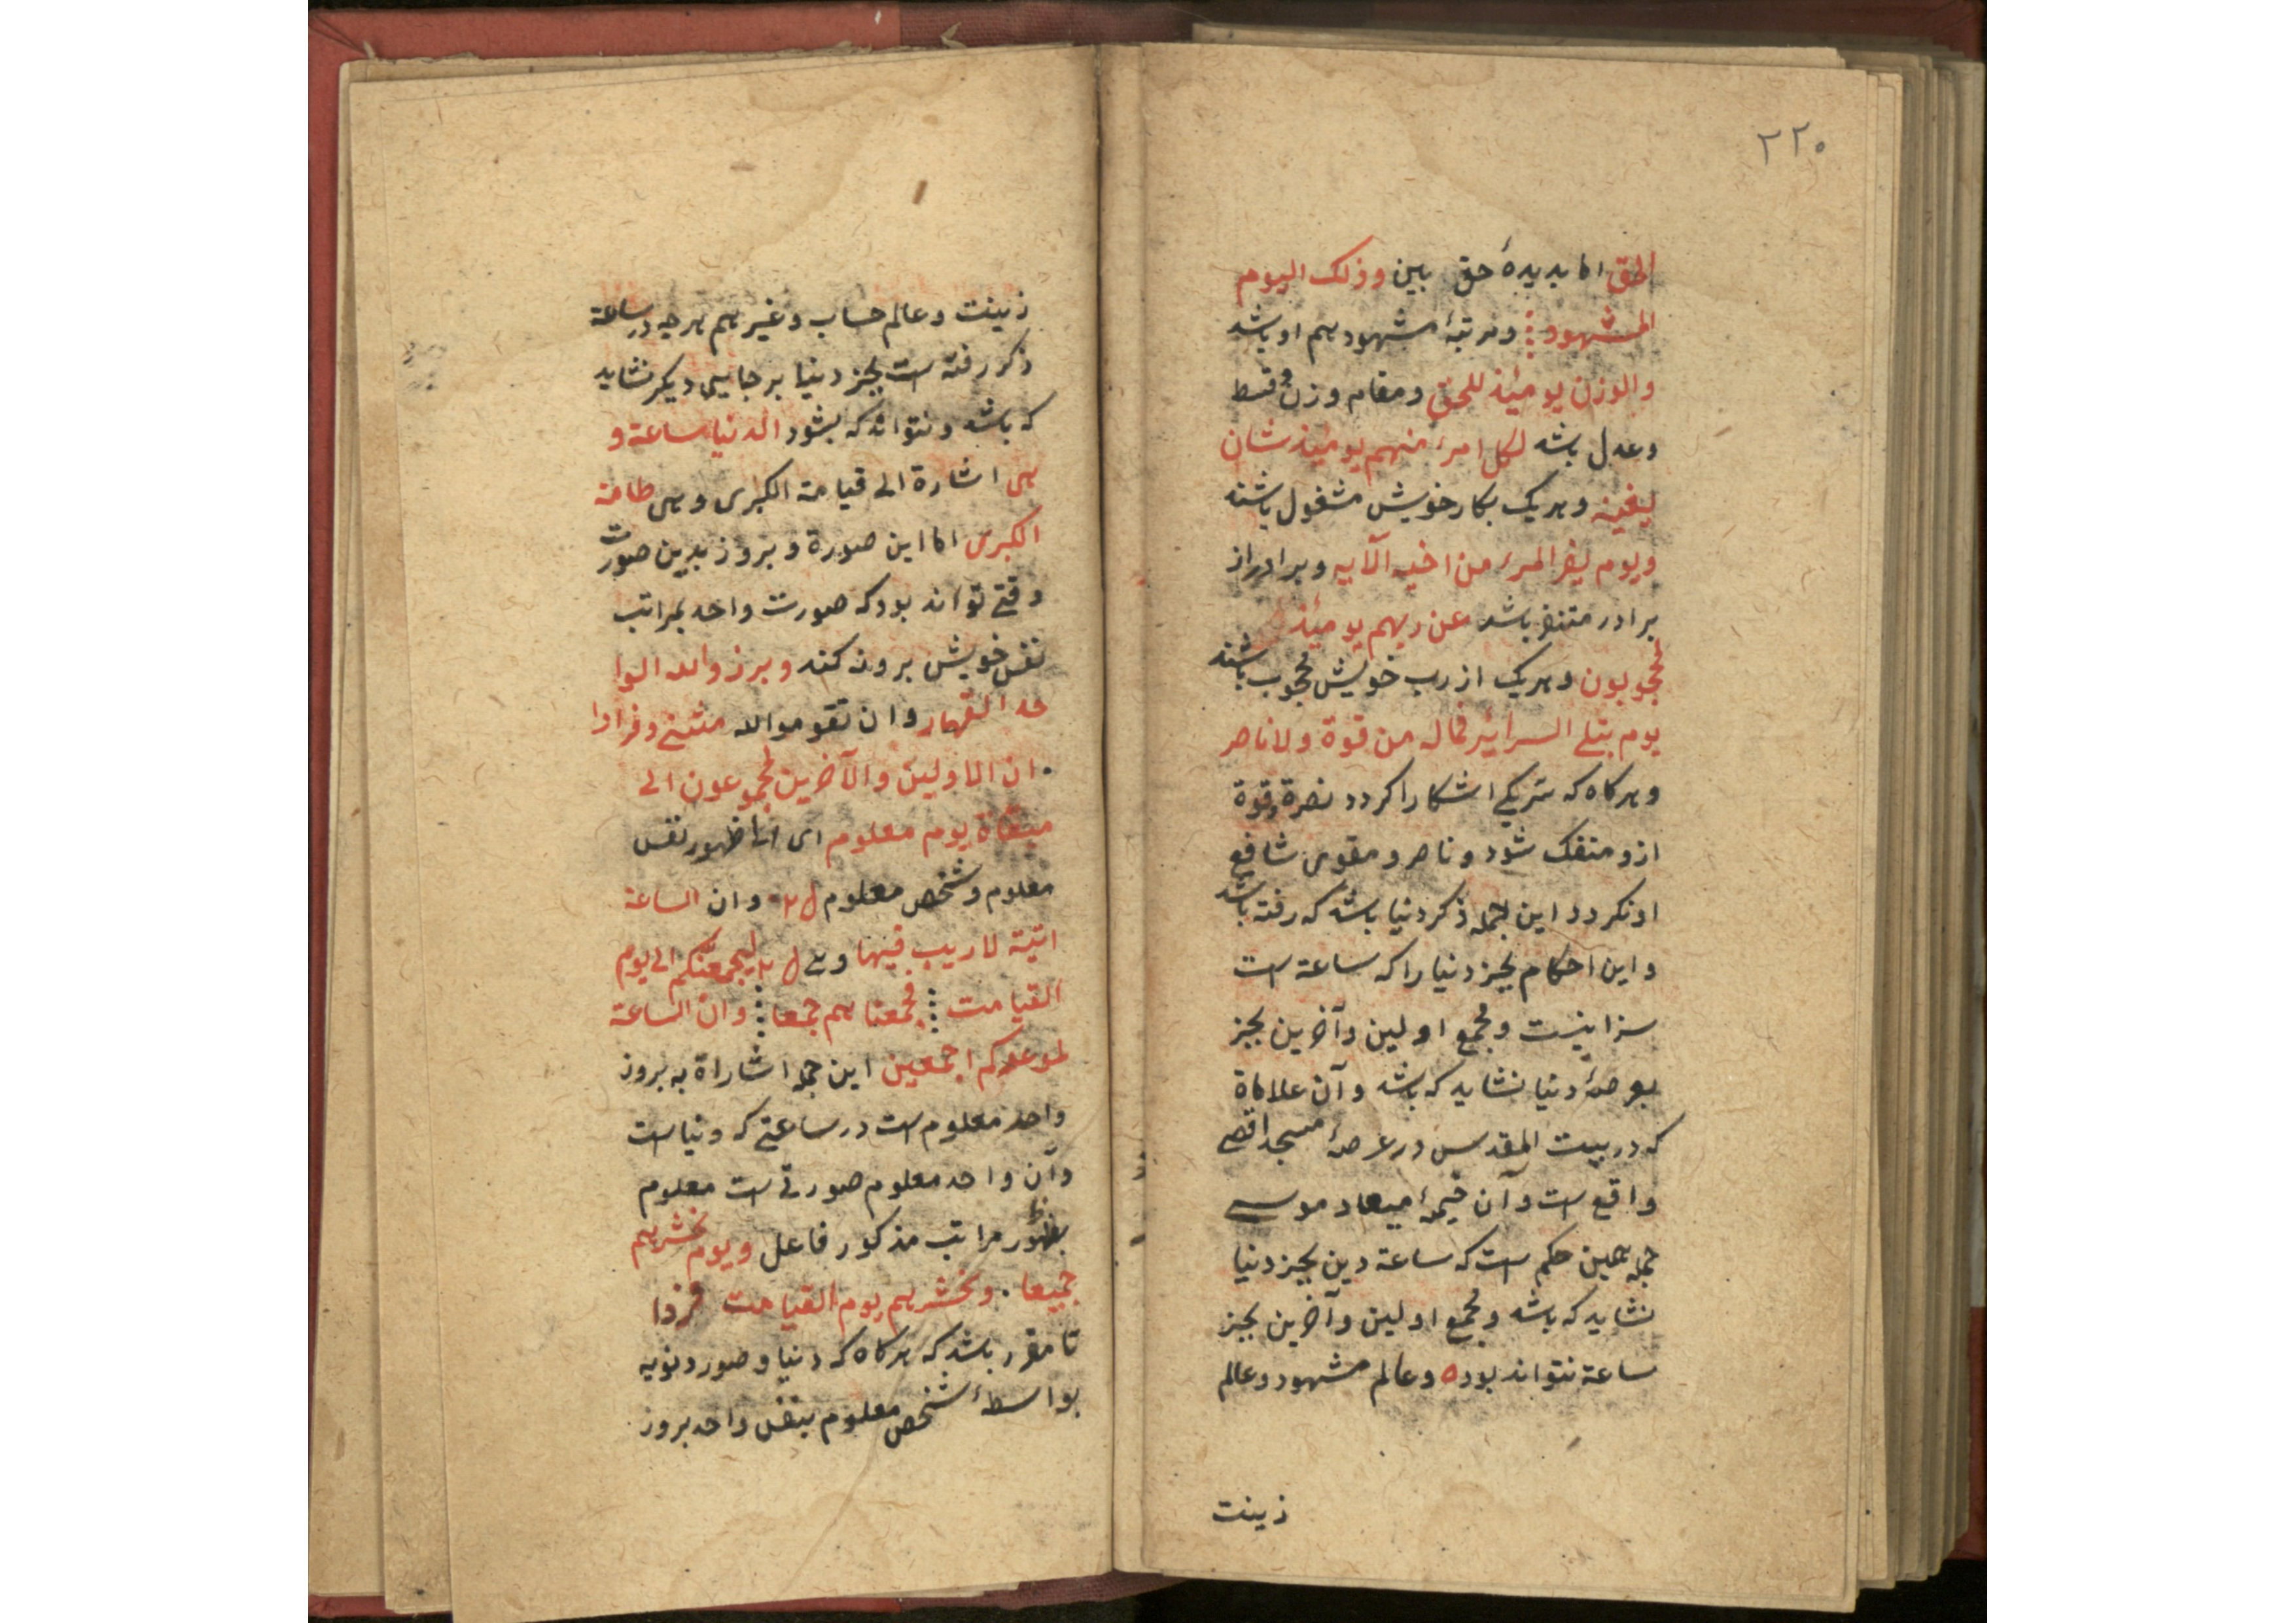 ۲۲۰
الحق اما بدیدهٔ حق بین و ذلک الیوم
المشهود ؞ و مرتبهٔ مشهود هم او باشد
والوزن یومئذ للحق و مقام وزن و قسط
و عدل باشد لکل امرء منهم یومئذ شان
یغنیه و هریک بکار خویش مشغول باشند
و یوم یفر المرء من اخیه الآیه و برادر از
برادر متنفر باشد عن ربهم یومئذ
لمحجوبون و هریک از رب خویش محجوب باشند
یوم بتلی السرایر فماله من قوة و لا ناصر
و هرکاه که سر یکی اشکارا کردد نصرة و قوة
ازو منفک شود و ناصر و مقوی شافع
او نکردد این جمله ذکر دنیا باشد که رفته باشد
و این احکام بجز دنیا را که ساعة است
سزا نیست و مجمع اولین و آخرین بجز
بعرصهٔ دنیا نشاید که باشد و آن علاماة
که در بیت المقدس در عرصهٔ مسجد اقصی
واقع است و آن خیمهٔ میعاد موسی
جمله همین حکم است که ساعة دین بجز دنیا
نشاید که باشد و مجمع اولین و آخرین بجز
ساعة نتواند بود ه و عالم مشهود و عالم
زینت
زینت و عالم حساب و غیر هم هرچه در ساعة
ذکر رفته است بجز دنیا بر جایی دیکر نشاید
که باشد و نتواند که بشود الدنیا ساعة و
هی اشارة الی قیامة الکبری و هی طامة
الکبری اما این صورة و بروز بدین صورت
وقتی تواند بود که صورت واحد بمراتب
نفس خویش برون کند و برزوا لله الوا
حد القهار و ان تقوموا لله مثنی و فرادا
. ان الاولین و الآخرین لمجموعون الی
میقاة یوم معلوم ای الی ظهور نفس
معلوم و شخص معلوم و ان الساعة
اتیة لا ریب فیها لیجمعنکم الی یوم
القیامت ؞ فجمعناهم جمعا ؞ و ان الساعة
لموعدکم اجمعین این جمله اشاراة به بروز
واحد معلوم است در ساعتی که دنیاست
و آن واحد معلوم صورتی است معلوم
بظهور مراتب مذکور فاعل و یوم نحشرهم
جمیعا . و نحشرهم یوم القیامت فردا
تا مقرر باشد که هرکاه که دنیا و صور دنویه
بواسطهٔ شخص معلوم بنفس واحد بروز